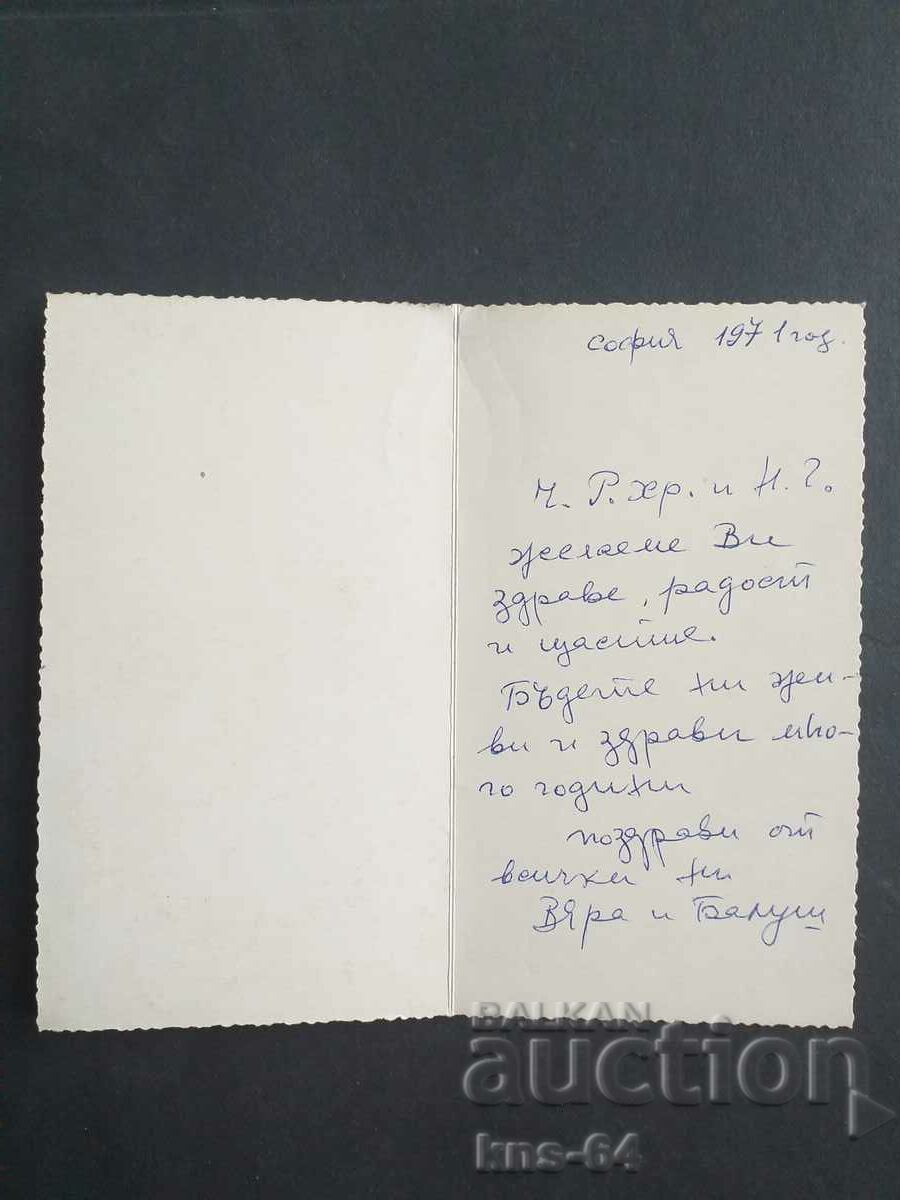 София 1971 год.
Ч. Р. Хр. и Н. Г.
желаеме Ви
здраве, радост
и щастие.
Бъдете ни жи-
ви и здрави мно-
го години
поздрави от
всички ни
Вяра и
BALKAN
auction
kns-64